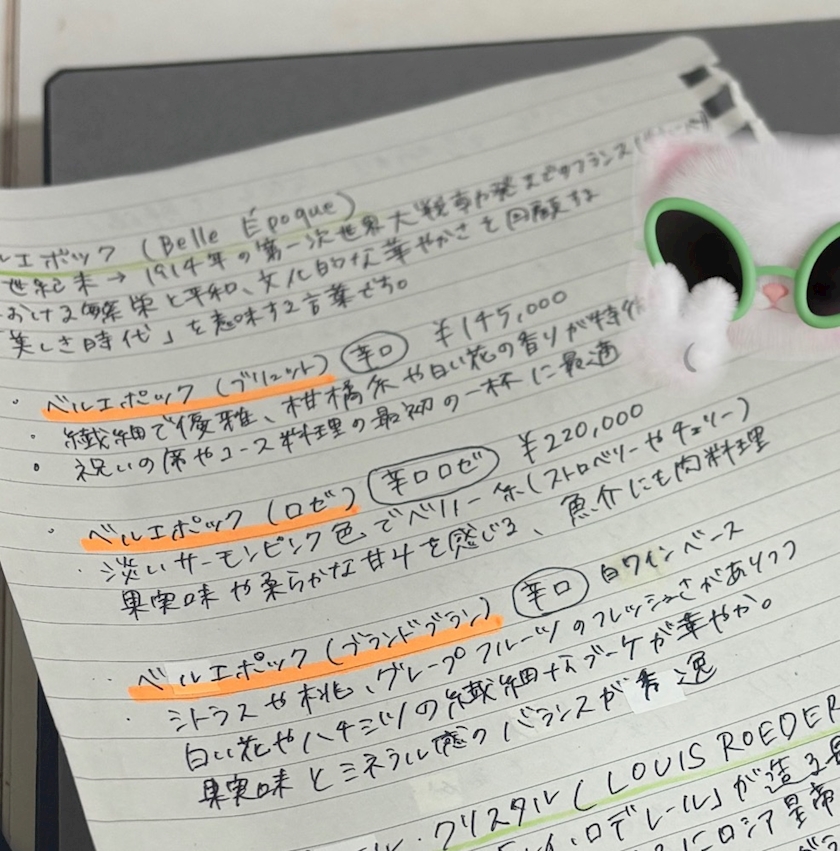 ルエポック (Belle Époque)
世紀末→1914年の第一次世界大戦争が発までのフランス
おける繁栄と平和、文化的な華やかさを回顧する
美しき時代」を意味する言葉です。
・ベルエポック (ブリュット) 辛口 ¥145,000
・繊細で優雅、柑橘系や白い花の香りが特徴
・祝いの席やコース料理の最初の一杯に最適
・ベルエポック (ロゼ) 辛口ロゼ ¥220,000
・淡いサーモンピンク色でベリー系(ストロベリーやチェリー)
果実味や柔らかな甘みを感じる、魚介にも肉料理
・ベルエポック (ブランドブラン) 辛口 白ワインベース
・シトラスや桃、グレープフルーツのフレッシュさがありつつ
白い花やハチミツの繊細なブーケが華やか。
果実味とミネラル感のバランスが秀逸
ル・クリスタル (LOUIS ROEDER
ルイ・ロデレール」が造る最
にロシア皇帝